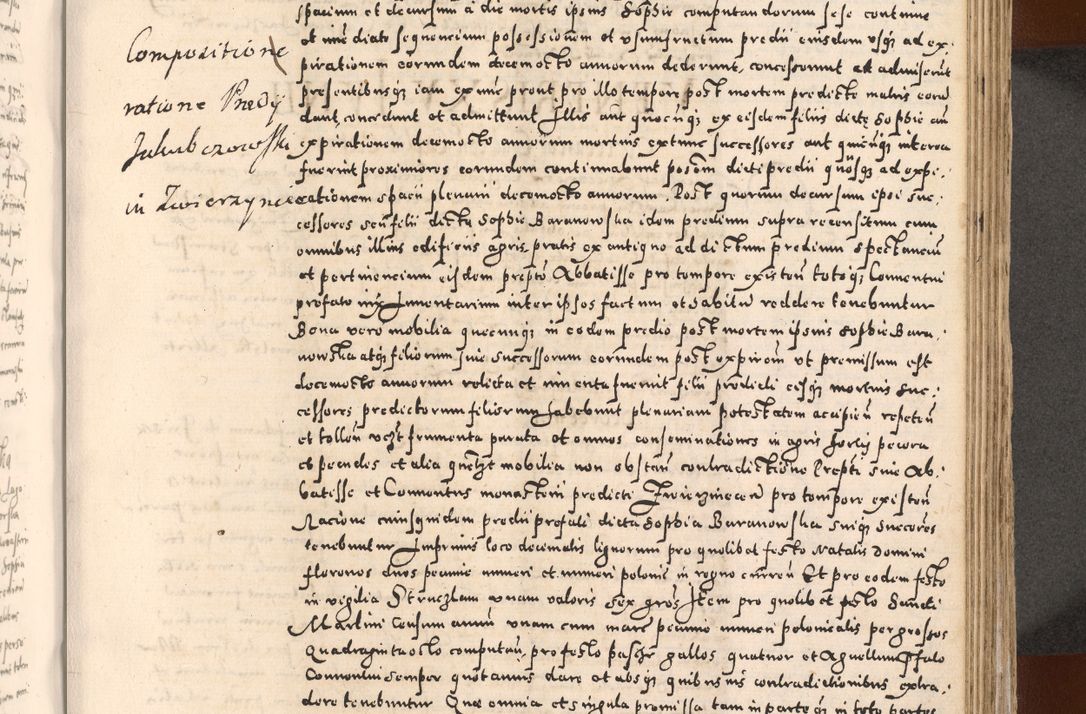 Compositione
ratione Predij
Jakubczowski
in Zwierzyniec
spacium et decursum a die mortis ipsius Sophie computandorum sese continue
et immediate sequencium possessionem et usumfructum predii eiusdem usq ad ex
pirationem eorundem decemocto annorum dederunt, concesserunt et admiserunt
presentibusq iam ex nunc prout pro illo tempore post mortem predicte matris eorum
dant, concedunt et admittunt Illis aut quocunq ex eisdem filiis dicte Sophie an
expirationem decemocto annorum mortuis extunc successores aut quicunq interea
fuerint proximiores eorundem continuabunt possom dicti predii quousq ad expi
rationem spacii plenarii decemocto annorum. Post quorum decursum ipsi suc
cessores seu filii dicte Sophie Baranowska idem predium supra recensitum cum
omnibus illius edificiis agris, pratis ex antiquo ad dictum predium spectanciu
et pertinencium eisdem prepto Abbatisse pro tempore existen totoq Conventui
prefato iux Inventarium inter ipsos factum et habitu reddere tenebuntur
Bona vero mobilia quecunq in eodem predio post mortem ipsius Sophie Bara
nowska atq filiorum sue successorum eorundem post expirom ut premissum est
decemocto annorum relicta et inventa fuerint filii predicti eisq mortuis suc
cessores predictorum filiorum habebunt plenariam potestatem accipien repeten
et tollen uczt frumenta parata et omnes conseminationes in agris hortis pecora
et pecudes et alia quelzt mobilia non obstan contradictione Prepti sue Ab
batisse et Conventus monasterii predicti Zwierzinecen pro tempore existen
Racione cuiusquidem predii prefati dicta Sophia Baranowska suiq succores
tenebuntur Imprimis loco decimalis lignorum pro quolibet festo Natalis Domini
florenos duos pecunie numeri et numeri polonic in regno curren Et pro eodem festo
in vigilia Struczlam unam valoris sex gros Item pro quolibet festo Sancti
Martini Censum annu unam cum marc pecunie numeri polonicalis per grossos
Quadraginta octo computan, pro festo pasche gallos quatuor et Agnellum Pfato
Conventui semper quotannis dare et absq quibusvis contradictionibus extra
dere tenebuntur Que omnia et singula promissa tam in parte q in toto partes